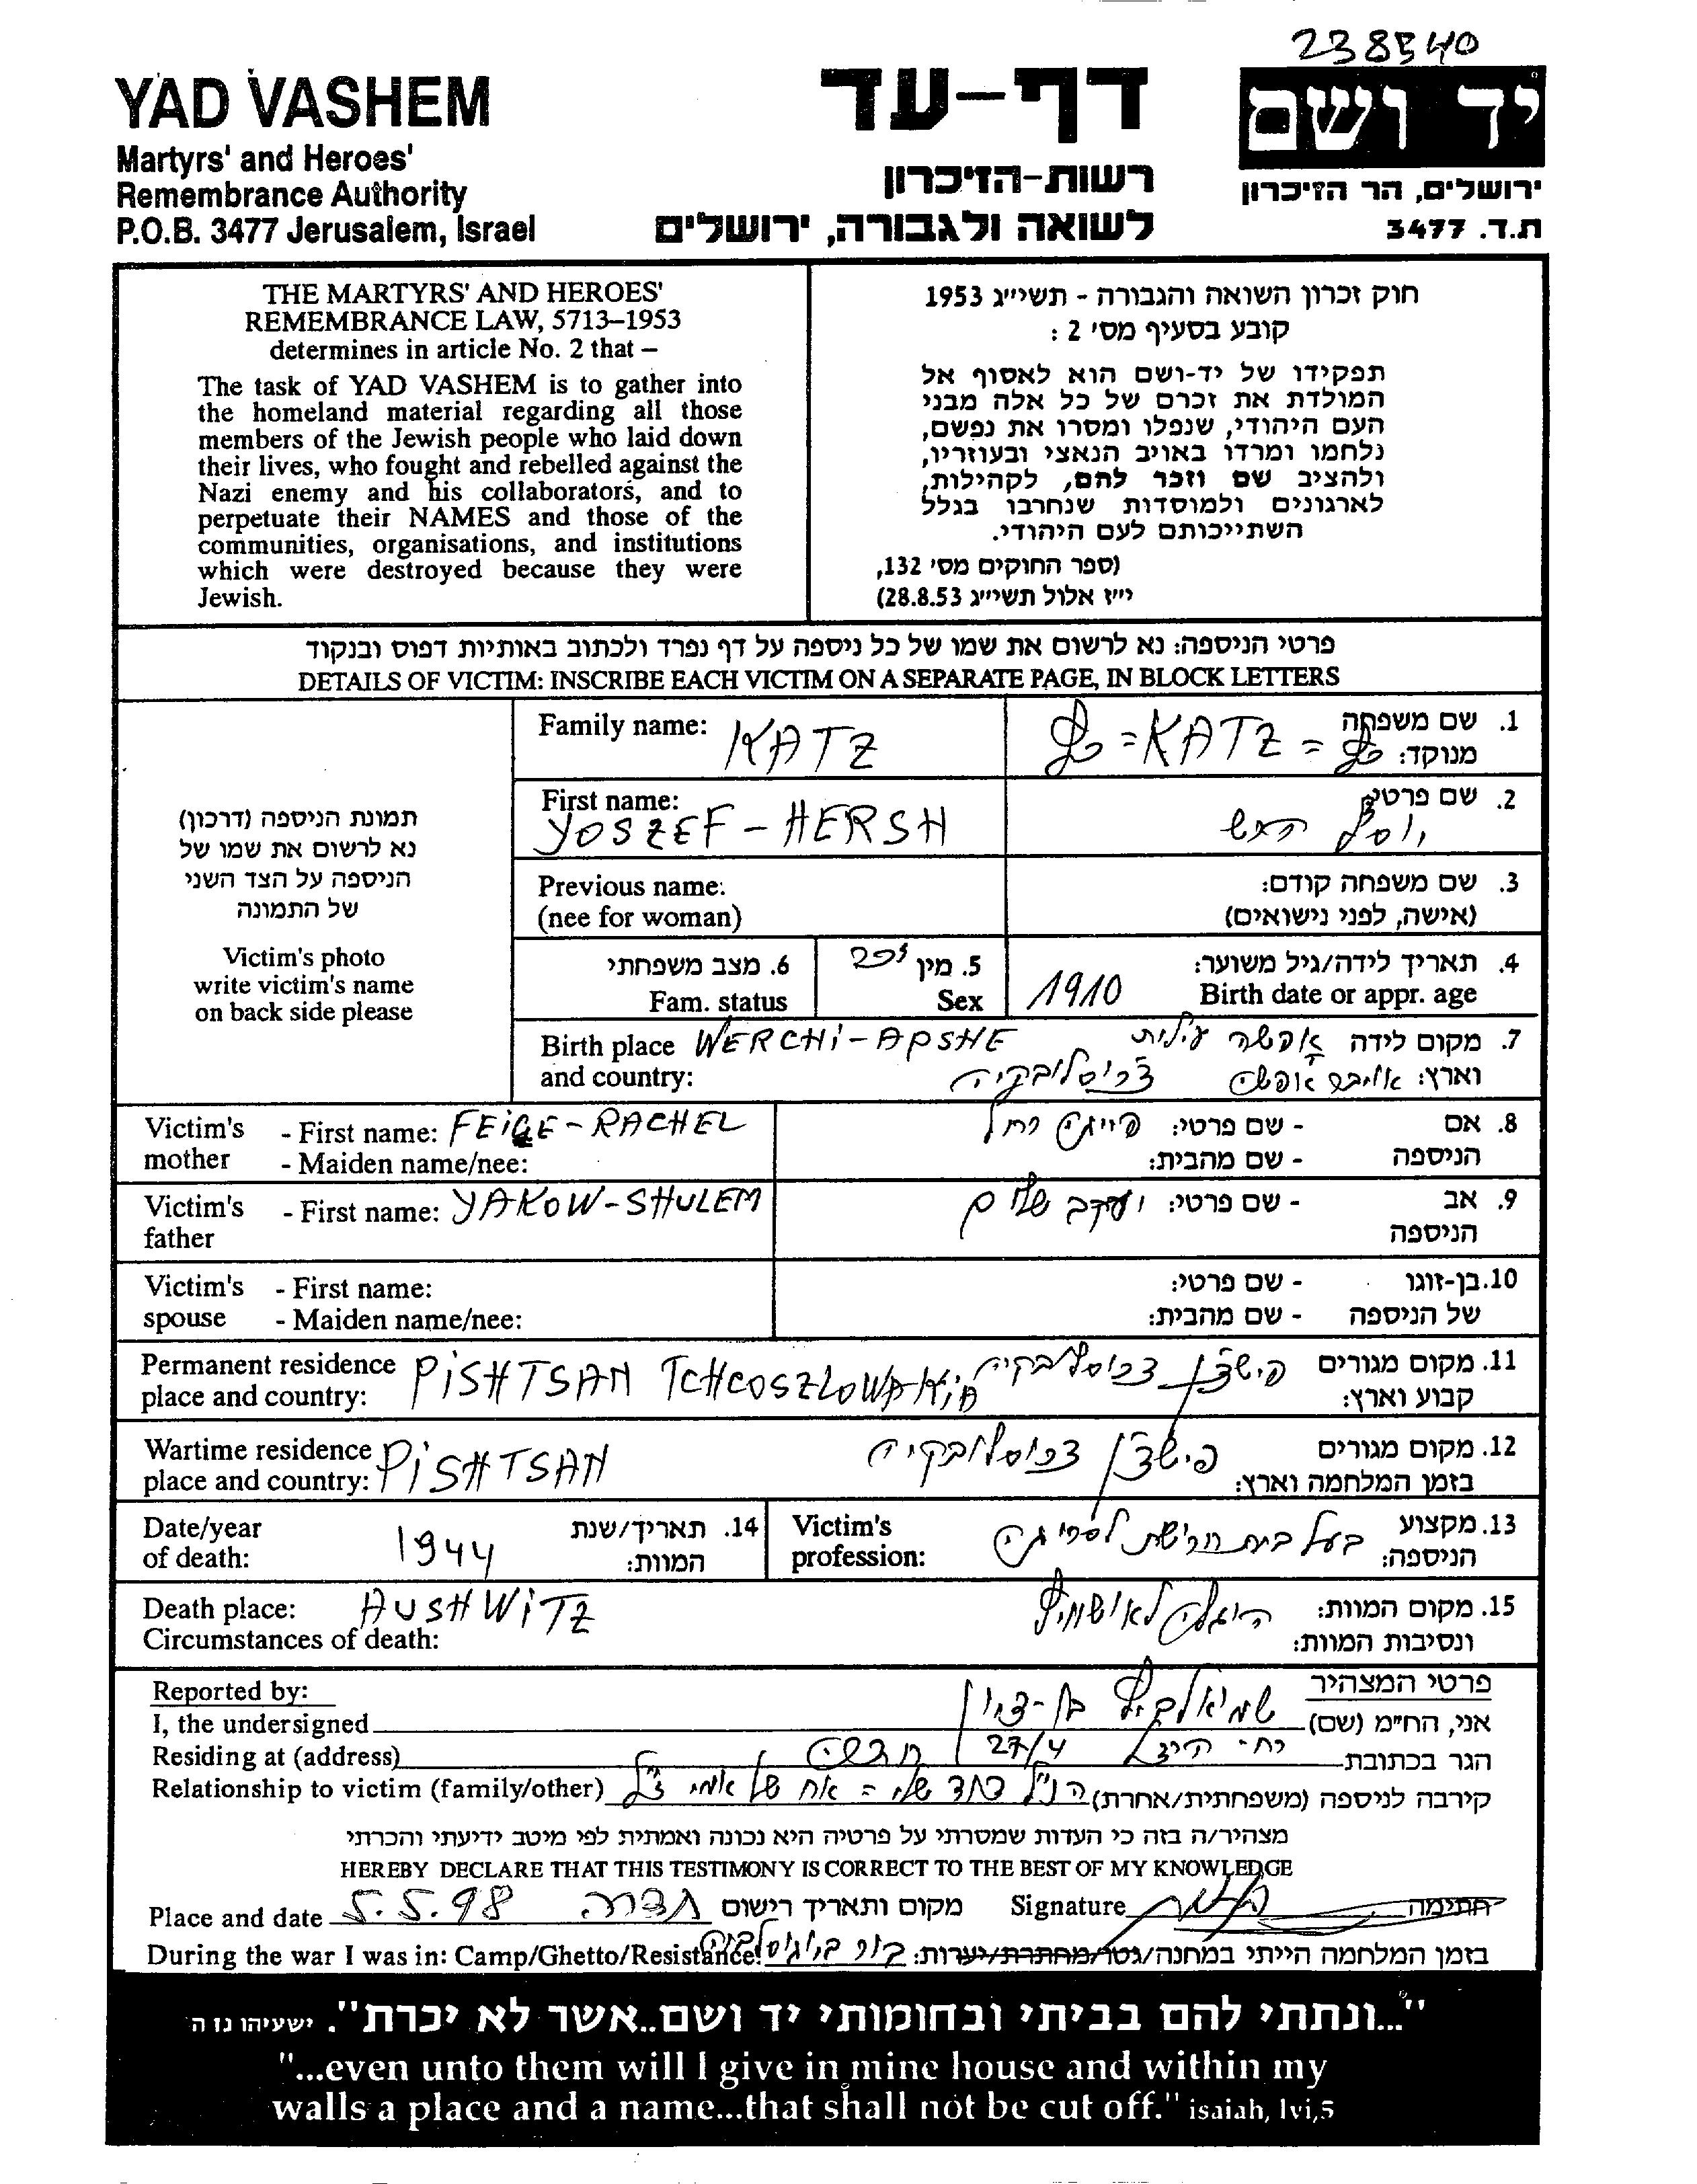 238540
YAD VASHEM
Martyrs' and Heroes'
Remembrance Authority
P.O.B. 3477 Jerusalem, Israel
דף-עד
רשות-הזיכרון
לשואה ולגבורה, ירושלים
יד ושם
ירושלים, הר הזיכרון
ת.ד. 3477
THE MARTYRS' AND HEROES'
REMEMBRANCE LAW, 5713–1953
determines in article No. 2 that –
The task of YAD VASHEM is to gather into
the homeland material regarding all those
members of the Jewish people who laid down
their lives, who fought and rebelled against the
Nazi enemy and his collaborators, and to
perpetuate their NAMES and those of the
communities, organisations, and institutions
which were destroyed because they were
Jewish.
חוק זכרון השואה והגבורה - תשי״ג 1953
קובע בסעיף מס׳ 2 :
תפקידו של יד-ושם הוא לאסוף אל
המולדת את זכרם של כל אלה מבני
העם היהודי, שנפלו ומסרו את נפשם,
נלחמו ומרדו באויב הנאצי ובעוזריו,
ולהציב שם וזכר להם, לקהילות,
לארגונים ולמוסדות שנחרבו בגלל
השתייכותם לעם היהודי.
(ספר החוקים מס׳ 132,
י״ז אלול תשי״ג 28.8.53)
פרטי הניספה: נא לרשום את שמו של כל ניספה על דף נפרד ולכתוב באותיות דפוס ובנקוד
DETAILS OF VICTIM: INSCRIBE EACH VICTIM ON A SEPARATE PAGE, IN BLOCK LETTERS
תמונת הניספה (דרכון)
נא לרשום את שמו של
הניספה על הצד השני
של התמונה
Victim's photo
write victim's name
on back side please
Family name: KATZ
1. שם משפחה מנוקד: כץ = KATZ = כץ
First name: YOSZEF - HERSH
2. שם פרטי: יוסף הרש
Previous name:
(nee for woman)
3. שם משפחה קודם:
(אישה, לפני נישואים)
6. מצב משפחתי
Fam. status
5. מין זכר
Sex
4. תאריך לידה/גיל משוער:
Birth date or appr. age 1910
Birth place WERCHI-APSHE
and country:
7. מקום לידה אפשה עילית
וארץ: אויבר אפשה צ'כוסלובקיה
Victim's mother - First name: FEIGE-RACHEL
- Maiden name/nee:
8. אם הניספה - שם פרטי: פייגה רחל
- שם מהבית:
Victim's father - First name: YAKOW-SHULEM
9. אב הניספה - שם פרטי: יעקב שלום
Victim's spouse - First name:
- Maiden name/nee:
10. בן-זוגו של הניספה - שם פרטי:
- שם מהבית:
Permanent residence
place and country: PISHTSAN TCHCOSZLOWAKIA
11. מקום מגורים
קבוע וארץ: פישצ'ן צ'כוסלובקיה
Wartime residence
place and country: PISHTSAN
12. מקום מגורים
בזמן המלחמה וארץ: פישצ'ן צ'כוסלובקיה
Date/year
of death: 1944
14. תאריך/שנת
המוות:
Victim's
profession:
13. מקצוע
הניספה: בעל בית חרישת
Death place: AUSHWITZ
Circumstances of death:
15. מקום המוות:
ונסיבות המוות: לאושוויץ
Reported by:
I, the undersigned
Residing at (address)
Relationship to victim (family/other)
פרטי המצהיר
אני, הח״מ (שם) שמואלביץ בן-ציון
הגר בכתובת רח' 27/4 חדרה
קירבה לניספה (משפחתית/אחרת) הנ"ל דוד שלי = אח של אמי ז"ל
מצהיר/ה בזה כי העדות שמסרתי על פרטיה היא נכונה ואמתית לפי מיטב ידיעתי והכרתי
HEREBY DECLARE THAT THIS TESTIMONY IS CORRECT TO THE BEST OF MY KNOWLEDGE
Place and date 5.5.98 חדרה מקום ותאריך רישום
Signature חתימה
During the war I was in: Camp/Ghetto/Resistance:
בזמן המלחמה הייתי במחנה/גטו/מחתרת/יערות:
"...ונתתי להם בביתי ובחומותי יד ושם..אשר לא יכרת". ישעיהו נז ה
"...even unto them will I give in mine house and within my
walls a place and a name...that shall not be cut off." isaiah, lvi,5